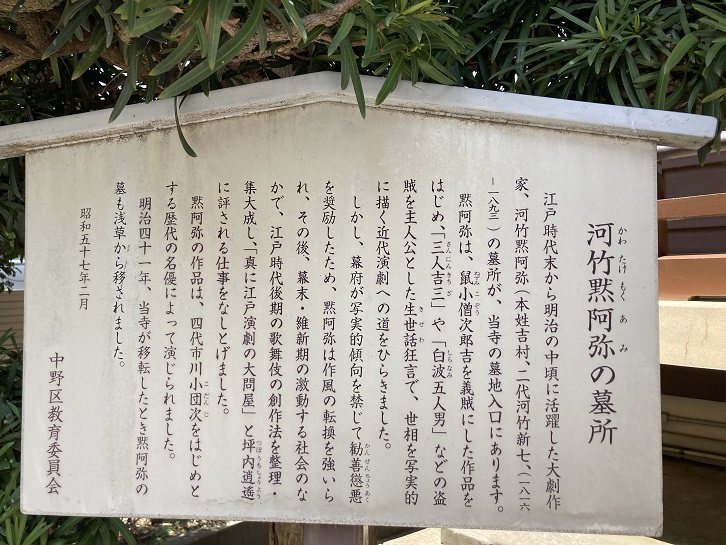 河竹黙阿弥の墓所
かわたけもくあみ
江戸時代末から明治の中頃に活躍した大劇作
家、河竹黙阿弥（本姓吉村、二代河竹新七、（一八一六
ー一八九三）の墓所が、当寺の墓地入口にあります。
黙阿弥は、鼠小僧次郎吉を義賊にした作品を
ねずみこぞう
はじめ、「三人吉三」や「白波五人男」などの盗
さんにんきちざ
しらなみ
賊を主人公とした生世話狂言で、世相を写実的
きぜわ
に描く近代演劇への道をひらきました。
しかし、幕府が写実的傾向を禁じて勧善懲悪
かんぜんちょうあく
を奨励したため、黙阿弥は作風の転換を強いら
れ、その後、幕末・維新期の激動する社会のな
かで、江戸時代後期の歌舞伎の創作法を整理・
集大成し、「真に江戸演劇の大問屋」と坪内逍遙
つぼうちしょうよう
に評される仕事をなしとげました。
黙阿弥の作品は、四代市川小団次をはじめと
こだんじ
する歴代の名優によって演じられました。
明治四十一年、当寺が移転したとき黙阿弥の
墓も浅草から移されました。
昭和五十七年二月
中野区教育委員会